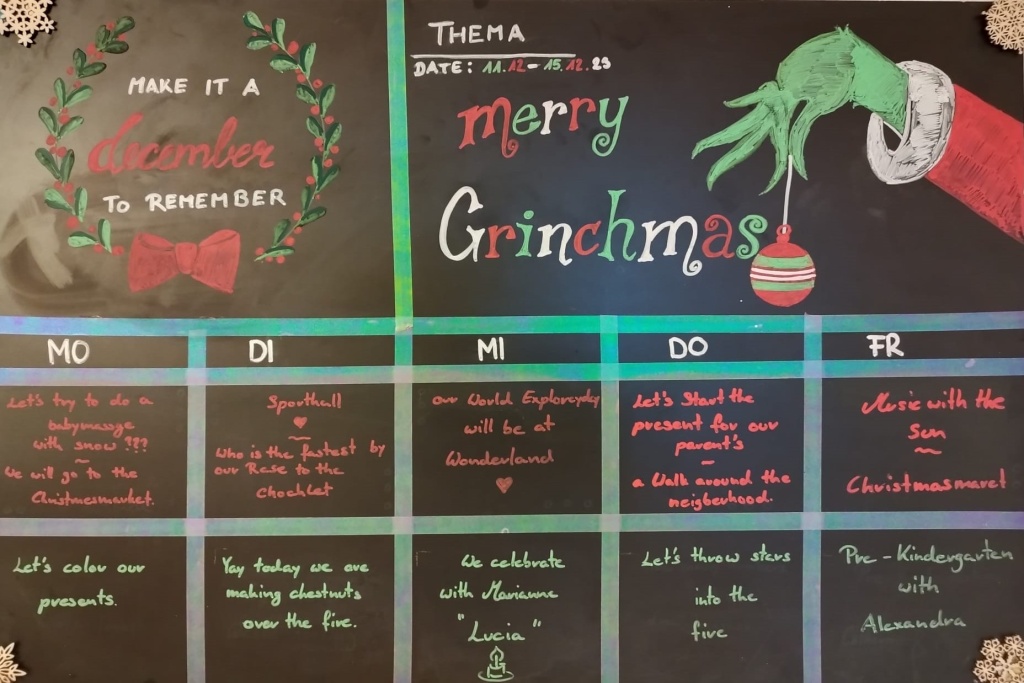 MAKE IT A
december
TO REMEMBER
THEMA
DATE: 11.12-15.12.23
merry
Grinchmas
MO
DI
MI
DO
FR
Let's try to do a
babymassage
with snow???
~
We will go to the
Christmasmarket.
Sporthall
♥
~
Who is the fastest by
our Rase to the
Chochlet
our World Explorcyday
will be at
Wonderland
♥
Let's Start the
present for our
parent's
~
a Walk around the
neigberhood.
Music with the
Sun
~
Christmasmaret
Let's color our
presents.
Yay today we are
making chestnuts
over the fire.
We celebrate
with Marianne
"Lucia"
Let's throw stars
into the
fire
Pre-Kindergarten
with
Alexandra